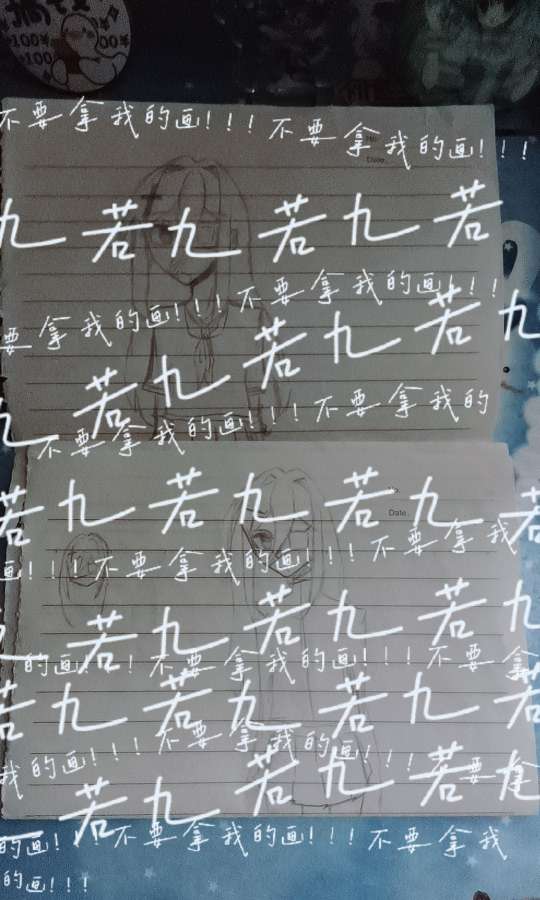 100¥ 00¥
100
不要拿我的画!!!不要拿我的画!!!
No.
Date.
九若九若九若
要拿我的画!!!不要拿我的画!!!
九若九若九若九
不要拿我的画!!!不要拿我的
若九若九若九若
No.
Date.
画!!!不要拿我的画!!!不要拿我
九若九若九若九
的画!!!不要拿我的画!!!不要拿
若九若九若九若
我的画!!!不要拿我的画!!!不要拿
九若九若九若九
的画!!!不要拿我的画!!!不要拿我
的画!!!